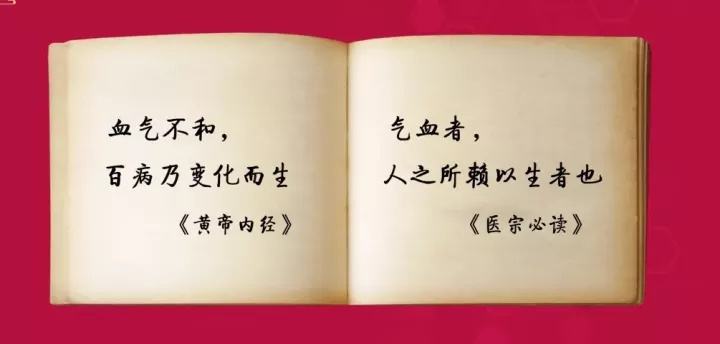 血气不和，
百病乃变化而生
《黄帝内经》
气血者，
人之所赖以生者也
《医宗必读》